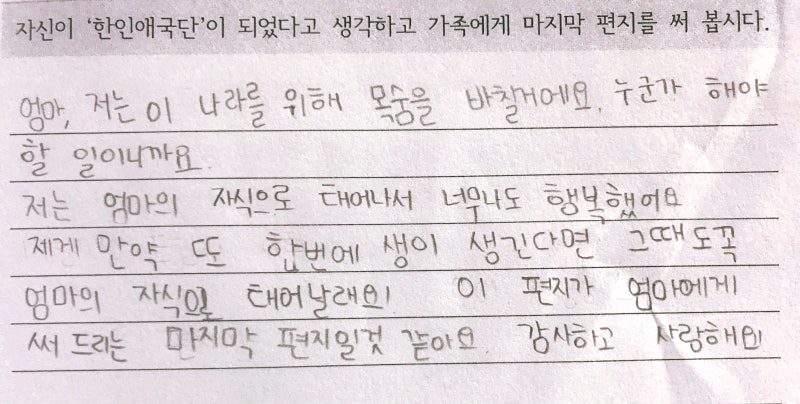 자신이 '한인애국단'이 되었다고 생각하고 가족에게 마지막 편지를 써 봅시다.
엄마, 저는 이 나라를 위해 목숨을 바칠거에요. 누군가 해야
할 일이니까요.
저는 엄마의 자식으로 태어나서 너무나도 행복했어요
제게 만약 또 한번에 생이 생긴다면 그때도꼭
엄마의 자식으로 태어날래요! 이 편지가 엄마에게
써 드리는 마지막 편지일것 같아요 감사하고 사랑해요!